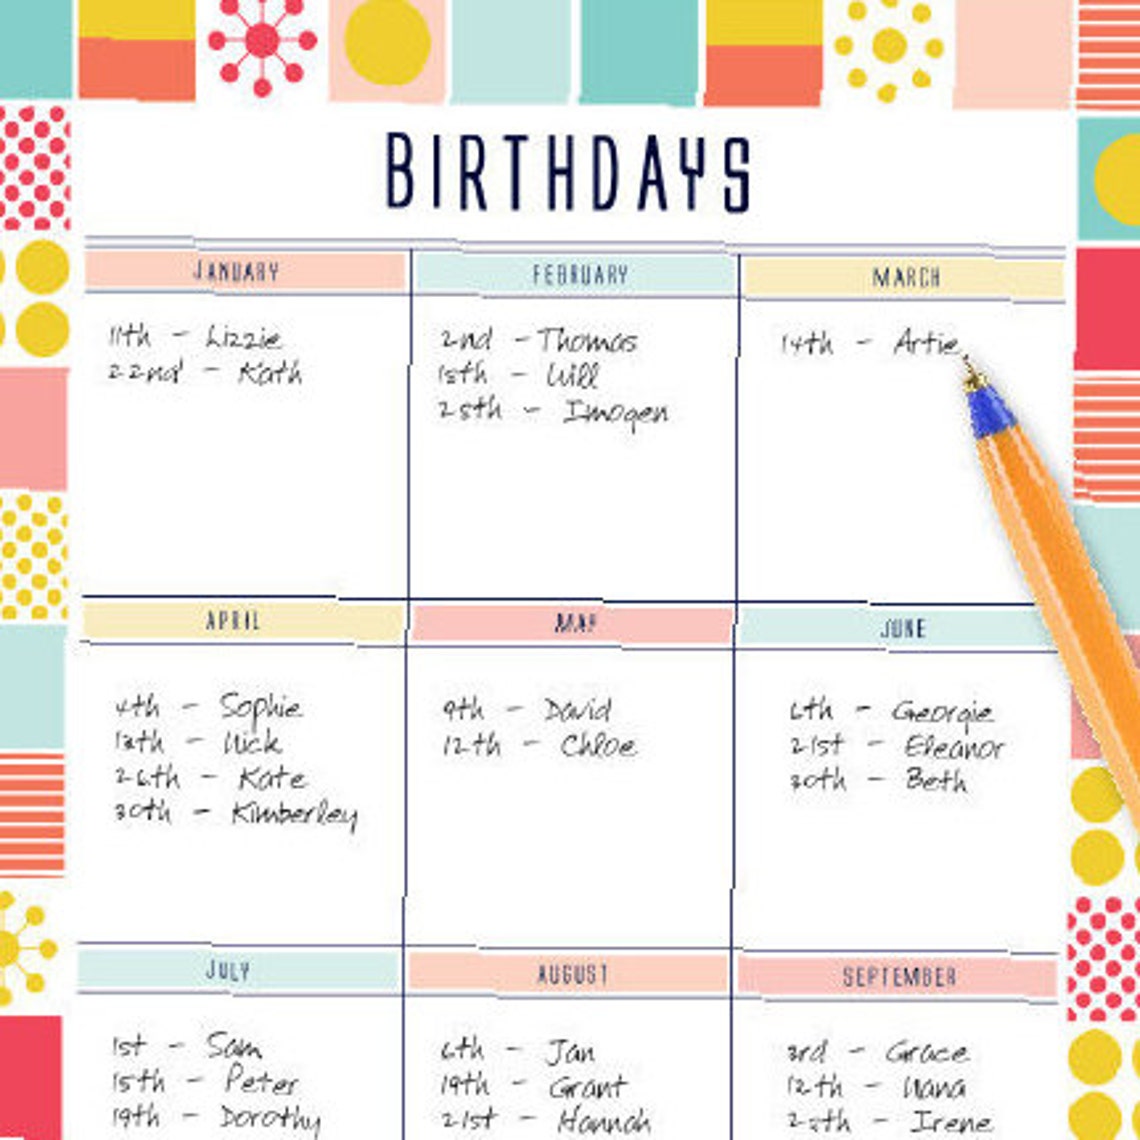 BIRTHDAYS
JANUARY
11th - Lizzie
22nd - Kath
FEBRUARY
2nd - Thomas
15th - Will
25th - Imogen
MARCH
14th - Artie
APRIL
4th - Sophie
- Nick
26th - Kate
30th - Kimberley
MAY
9th - David
12th - Chloe
JUNE
6th - Georgie
21st - Eleanor
30th - Beth
JULY
1st - Sam
15th - Peter
19th - Dorothy
AUGUST
6th - Jan
19th - Grant
21st - Hannah
SEPTEMBER
3rd - Grace
12th - Nana
- Irene